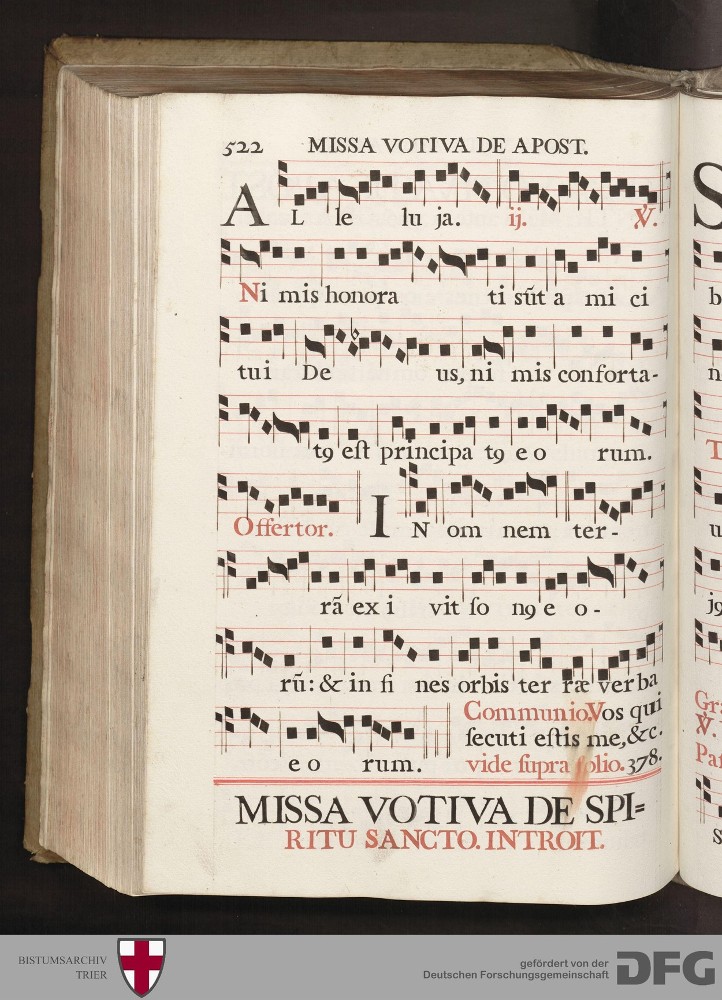 522 MISSA VOTIVA DE APOST.
AL le lu ja. ij. ℣.
Ni mis honora ti sũt a mi ci
tui De us, ni mis conforta-
tꝰ est principa tꝰ e o rum.
Offertor. IN om nem ter-
rã ex i vit so nꝰ e o-
rũ: & in fi nes orbis ter ræ verba
e o rum. Communio. Vos qui
secuti estis me, &c.
vide supra folio. 378.
MISSA VOTIVA DE SPI=
RITU SANCTO. INTROIT.
S
b
n
T
u
jꝰ
Gr
℣.
Pa
S
BISTUMSARCHIV
TRIER
gefördert von der
Deutschen Forschungsgemeinschaft
DFG